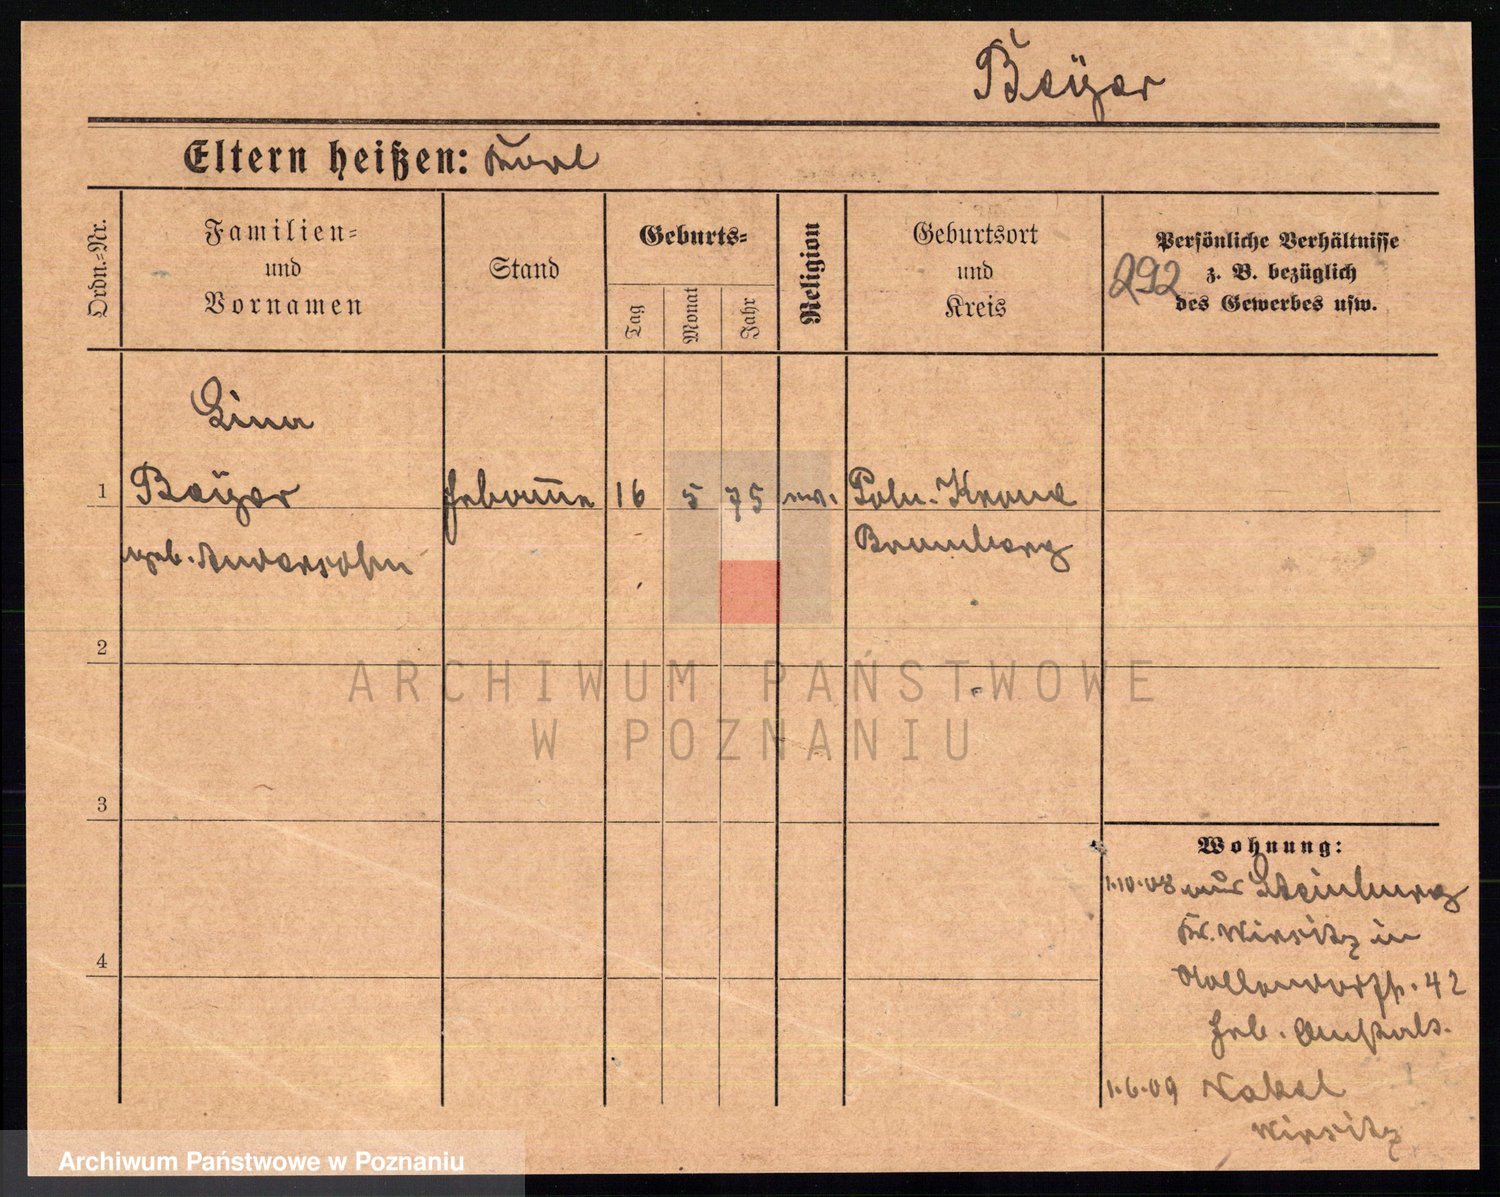 Bayer
Eltern heißen: Karl
Ordn.-Nr.
Familien-
und
Vornamen
Stand
Geburts-
Tag
Monat
Jahr
Religion
Geburtsort
und
Kreis
Persönliche Verhältnisse
z. B. bezüglich
des Gewerbes usw.
292
Lina
1 Bayer Hebamme 16 5 75 ev. Poln. Krone
geb. Andersohn Bromberg
2
3
4
Wohnung:
1.10.08 aus Steinburg
Kr. Wirsitz in
42
Heb. Anstalt.
1.6.09 Nakel
Wirsitz
ARCHIWUM PAŃSTWOWE
W POZNANIU
Archiwum Państwowe w Poznaniu